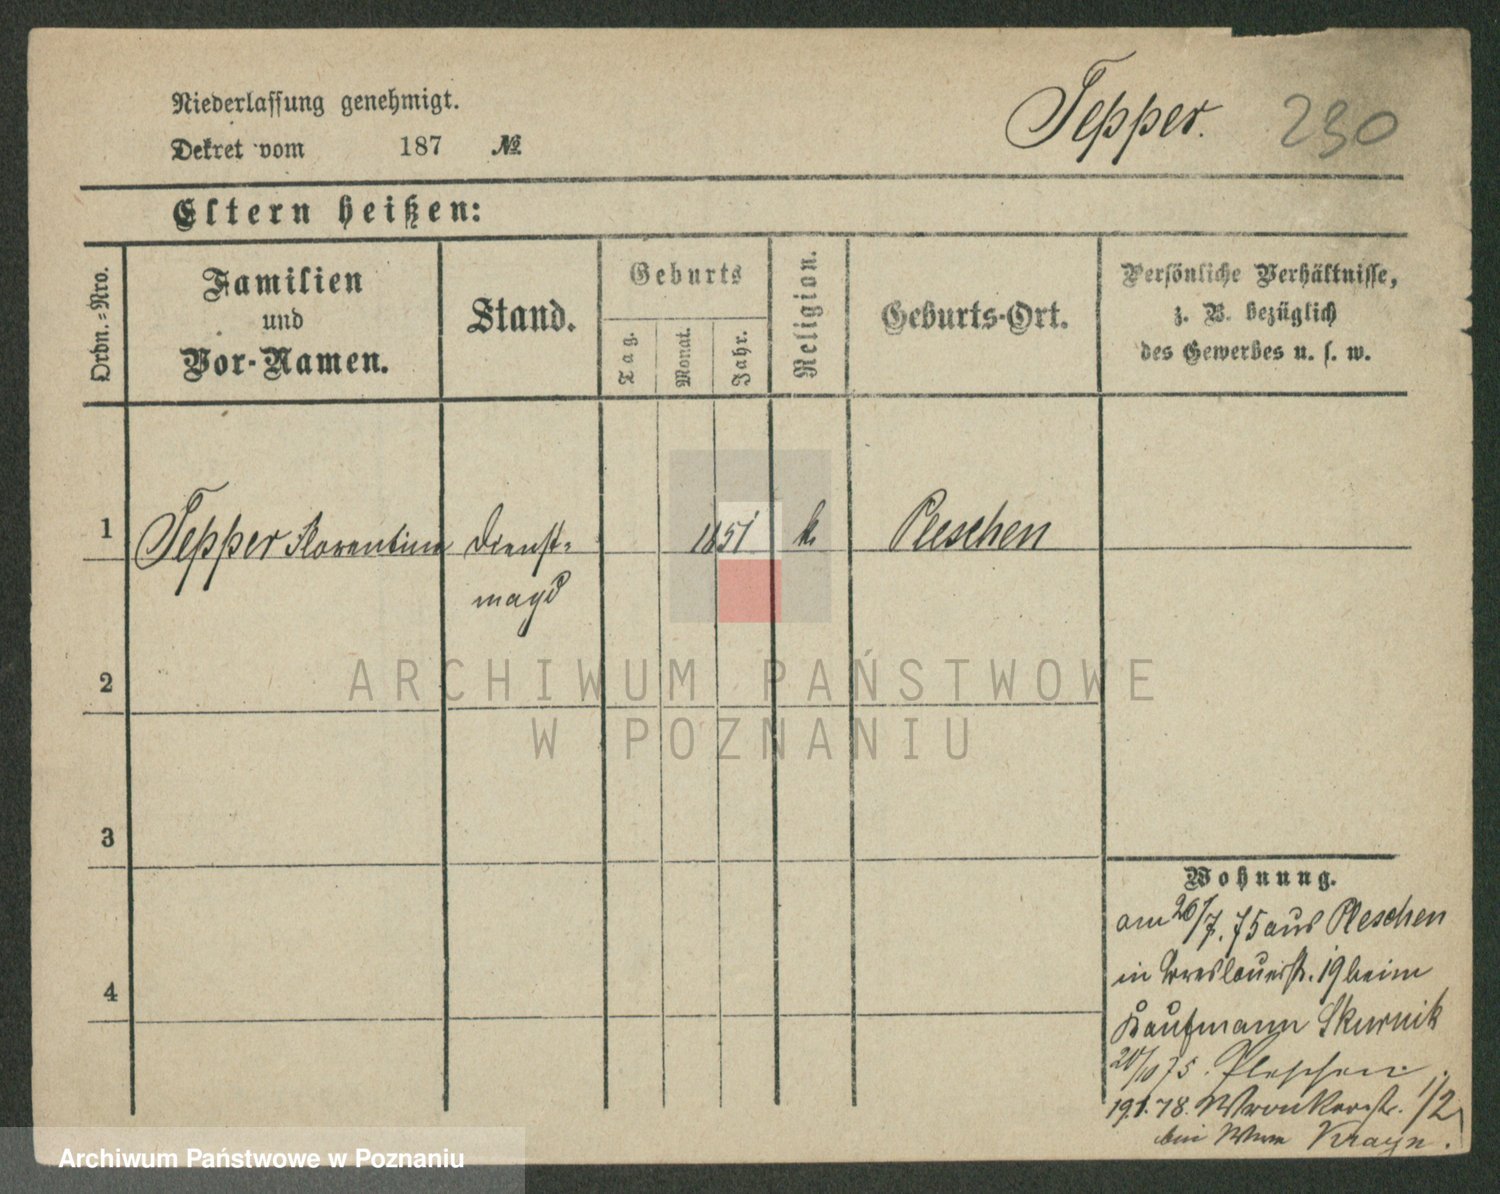 Niederlassung genehmigt.
Dekret vom 187 №
Tepper. 230
Eltern heißen:
Ordn.=Nro.
Familien
und
Vor-Namen.
Stand.
Geburts
Tag.
Monat.
Jahr.
Religion.
Geburts-Ort.
Persönliche Verhältnisse,
z. B. bezüglich
des Gewerbes u. s. w.
1 Tepper Florentine Dienst= 1851 k. Pleschen
magd
2
3
4
Wohnung.
am 26/7. 75 aus Pleschen
in Breslauerstr. 19 beim
Kaufmann Skurnik
20/10 75. Pleschen.
19.1.78. Wronkerstr. 1/2
bei Wwe Krayn.
ARCHIWUM PAŃSTWOWE
W POZNANIU
Archiwum Państwowe w Poznaniu